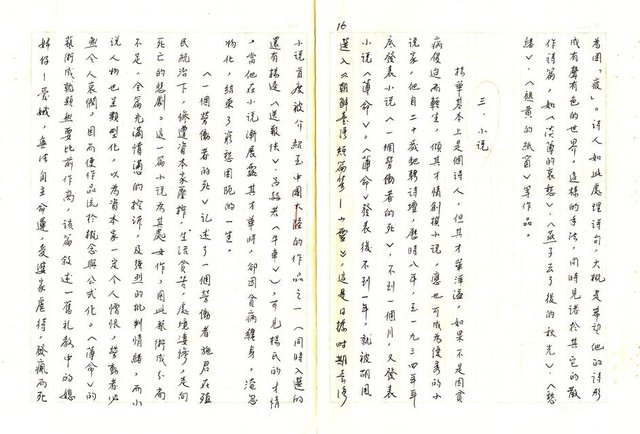 16
為因「蒼」。詩人如此處理詩句，大概是希望他的詩形
成有聲有色的世界。這樣的手法，同時見諸於其它的散
作詩篇，如〈淡薄的哀愁〉、〈燕子去了後的秋光〉、〈愁
緒〉、〈熱黃的紙窗〉等作品。
三．小說
楊華基本上是個詩人，但其才華洋溢，如果不是因貧
病侵迫而輕生，傾其才情創撰小說，應也可成為優秀的小
說家，他自二十歲馳騁詩壇，歷時八年，至一九三四年年
底發表小說〈一個勞働者的死〉，不到一個月，又發表
小說〈薄命〉。〈薄命〉發表後不到一年，就被胡風
選入《朝鮮臺灣短篇集——山靈》，這是日據時期臺灣
小說首度被介紹至中國大陸的作品之一（同時入選的
還有楊逵〈送報伕〉、呂赫若〈牛車〉），可見楊氏的才情
，當他在小說漸展露其才華時，卻因貧病纏身，淹忽
物化，結束了窮愁困阨的一生。
〈一個勞働者的死〉記述了一個勞働者施君在殖
民統治下，慘遭資本家壓搾，生活貧苦，處境淒慘，走向
死亡的悲劇。這一篇小說為其處女作，因此藝術成分尚
不足，全篇充滿憤懣的控訴，及強烈的批判情緒，而小
說人物也呈類型化，以為資本家一定令人憎恨，勞動者必
然令人哀憫，因而使作品流於概念與公式化。〈薄命〉的
藝術成就顯然要比前作高，該篇敘述一舊禮教中的媳
婦仔——愛娥，無法自主命運，受婆家虐待，發瘋而死